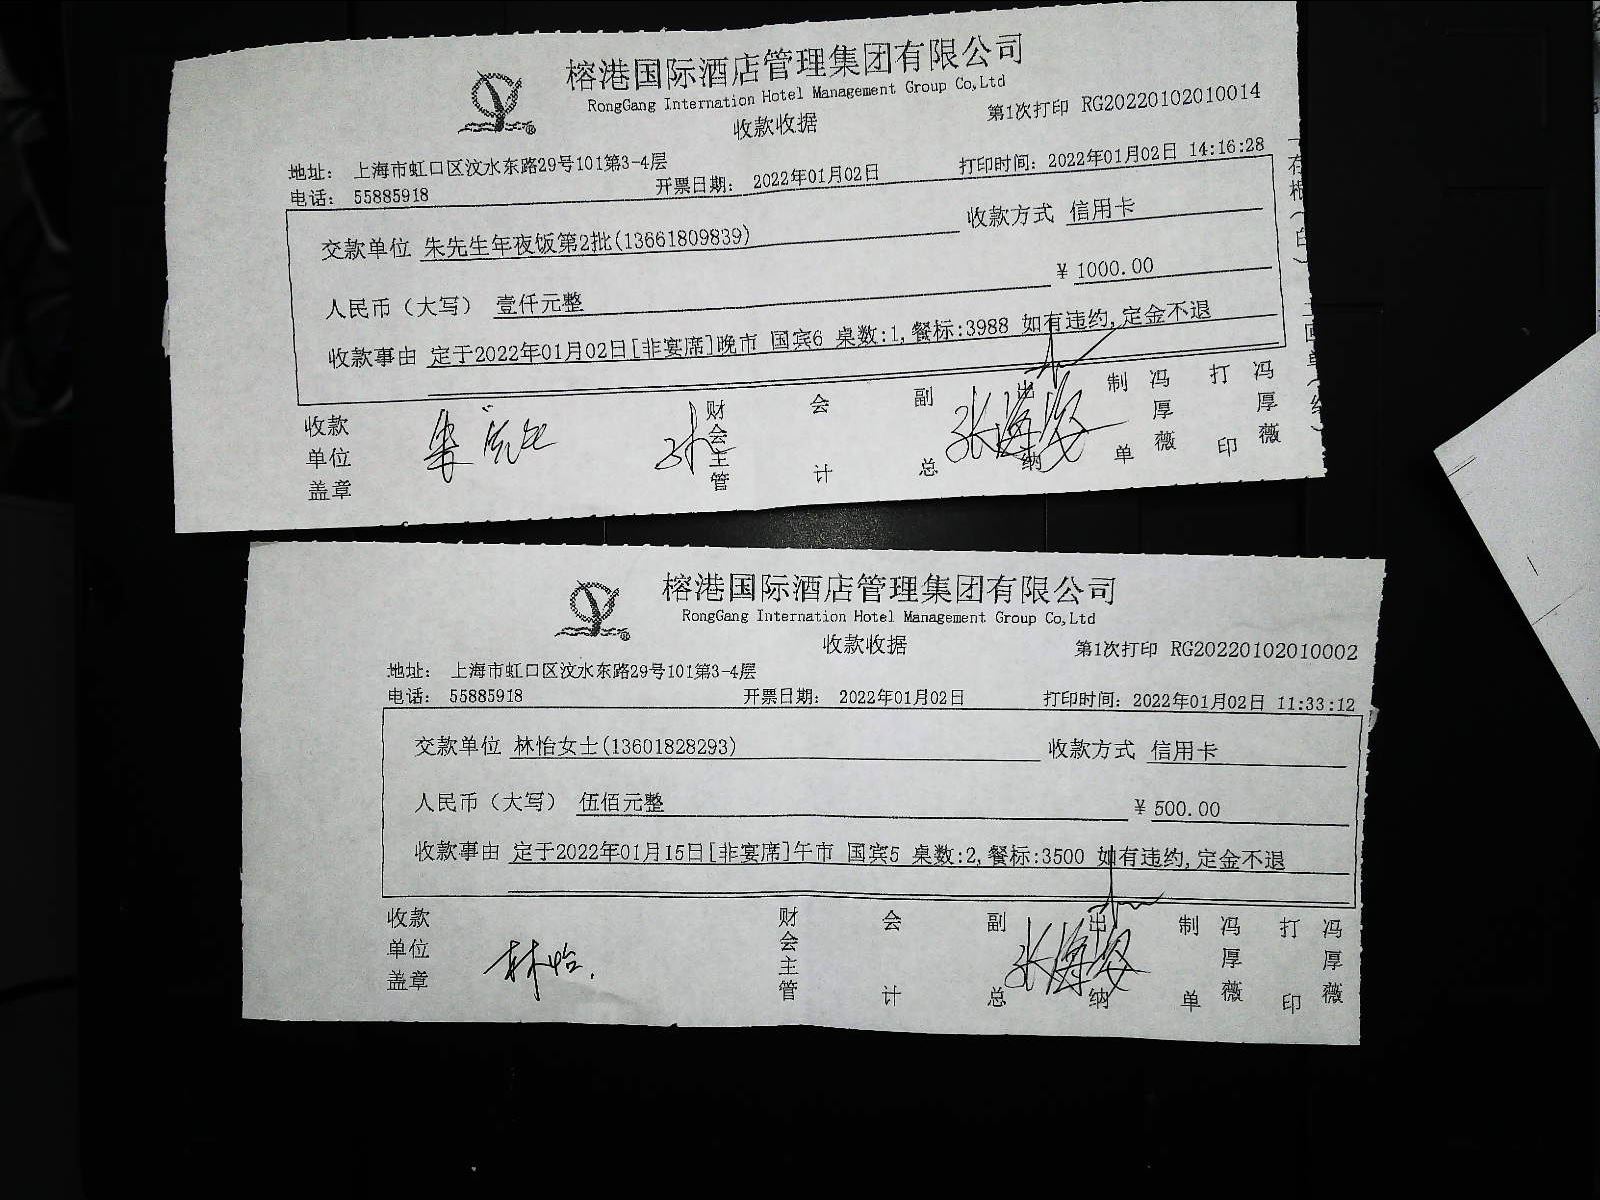 榕港国际酒店管理集团有限公司
RongGang Internation Hotel Management Group Co,Ltd
收款收据
第1次打印 RG20220102010014
地址： 上海市虹口区汶水东路29号101第3-4层
电话： 55885918 开票日期： 2022年01月02日 打印时间：2022年01月02日 14:16:28
交款单位 朱先生年夜饭第2批(13661809839) 收款方式 信用卡
人民币（大写） 壹仟元整 ￥1000.00
收款事由 定于2022年01月02日[非宴席]晚市 国宾6 桌数:1,餐标:3988 如有违约,定金不退
收款单位盖章 财会主管 会计 副总 出纳 张海燕 制单 冯厚薇 打印 冯厚薇
榕港国际酒店管理集团有限公司
RongGang Internation Hotel Management Group Co,Ltd
收款收据
第1次打印 RG20220102010002
地址： 上海市虹口区汶水东路29号101第3-4层
电话： 55885918 开票日期： 2022年01月02日 打印时间：2022年01月02日 11:33:12
交款单位 林怡女士(13601828293) 收款方式 信用卡
人民币（大写） 伍佰元整 ￥500.00
收款事由 定于2022年01月15日[非宴席]午市 国宾5 桌数:2,餐标:3500 如有违约,定金不退
收款单位盖章 林怡. 财会主管 会计 副总 出纳 制单 冯厚薇 打印 冯厚薇